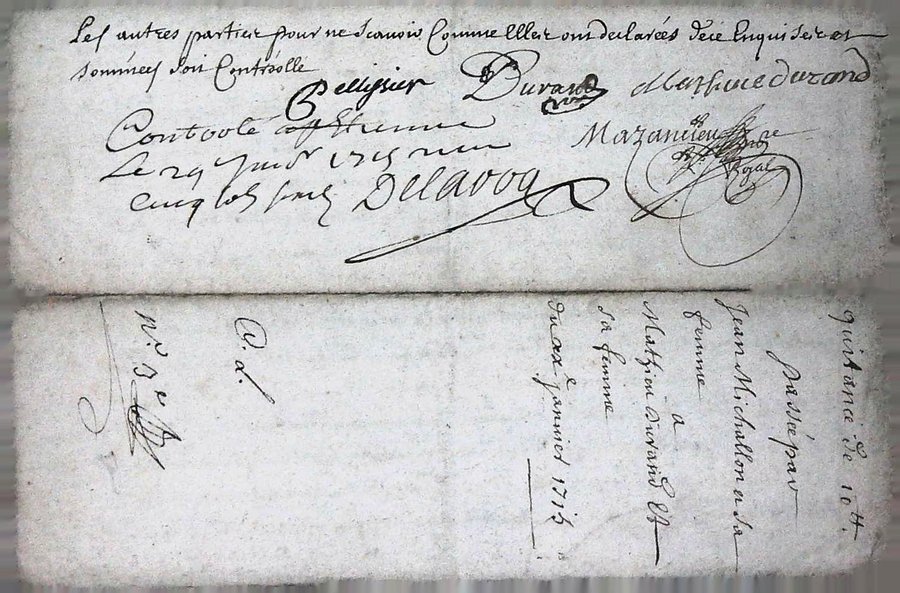 Les autres parties pour ne scavoir Comme Elles ont declarées de ce Enquises et
sommées soit Controlle
Pellissier Durand Mathieu durand
Controlé a St Etienne
Le 29e Janvr 1715 Reçu
cinq sols
Delaroa
Mazancieu
Royal
quittance de 10tt.
passé par
Jean Michallon et sa
femme
a
Mathieu durand Et
sa femme
du xxe janvier 1715
N.o 3e